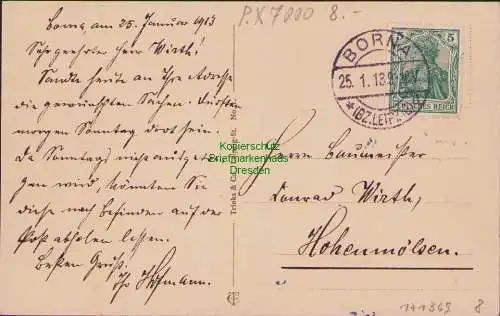 P.X 7000 8.-
Borna, am 25. Januar 1913
Sehr geehrter Herr Wirth!
Sandte heute an Ihre Adresse
die gewünschten Sachen. Dürften
morgen Sonntag dort sein.
Da Sonntags nicht ausgetra-
gen wird, könnten Sie
diese nach Befinden auf der
Post abholen lassen.
Besten Gruß!
Ihr Hofmann.
BORNA
25. 1. 13.
*(BZ. LEIPZIG)
5
DEUTSCHES REICH
Kopierschutz
Briefmarkenhaus
Dresden
Trinks & Co.
Herrn Baumeister
Conrad Wirth,
Hohenmölsen.
171369 8